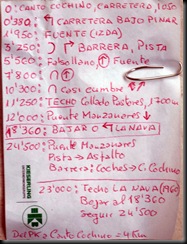 0: CANTO COCHINO, CARRETERA, 1.050
0'380 ↰ CARRETERA BAJO PINAR
1'950: FUENTE (IZDA)
3'200: ⊃ ↱ BARRERA, PISTA
5'560: Falsollano, ↑ Fuente
7'800: ∩ ↑
10'300: ∩ Casi cumbre ↑
11'250: TECHO Collado Pastores, 1700m
12'000 Puente Manzanares
18'360: BAJAR O ← LA NAVA
24'500: Puente Manzanares
Pista → Asfalto
Barrera: Coches → C. Cochino
23'000: Techo LA NAVA (1960)
Bajar al 18'360
Seguir 24'500
KIESERLING
Del PK a Canto Cochino = 4 Km